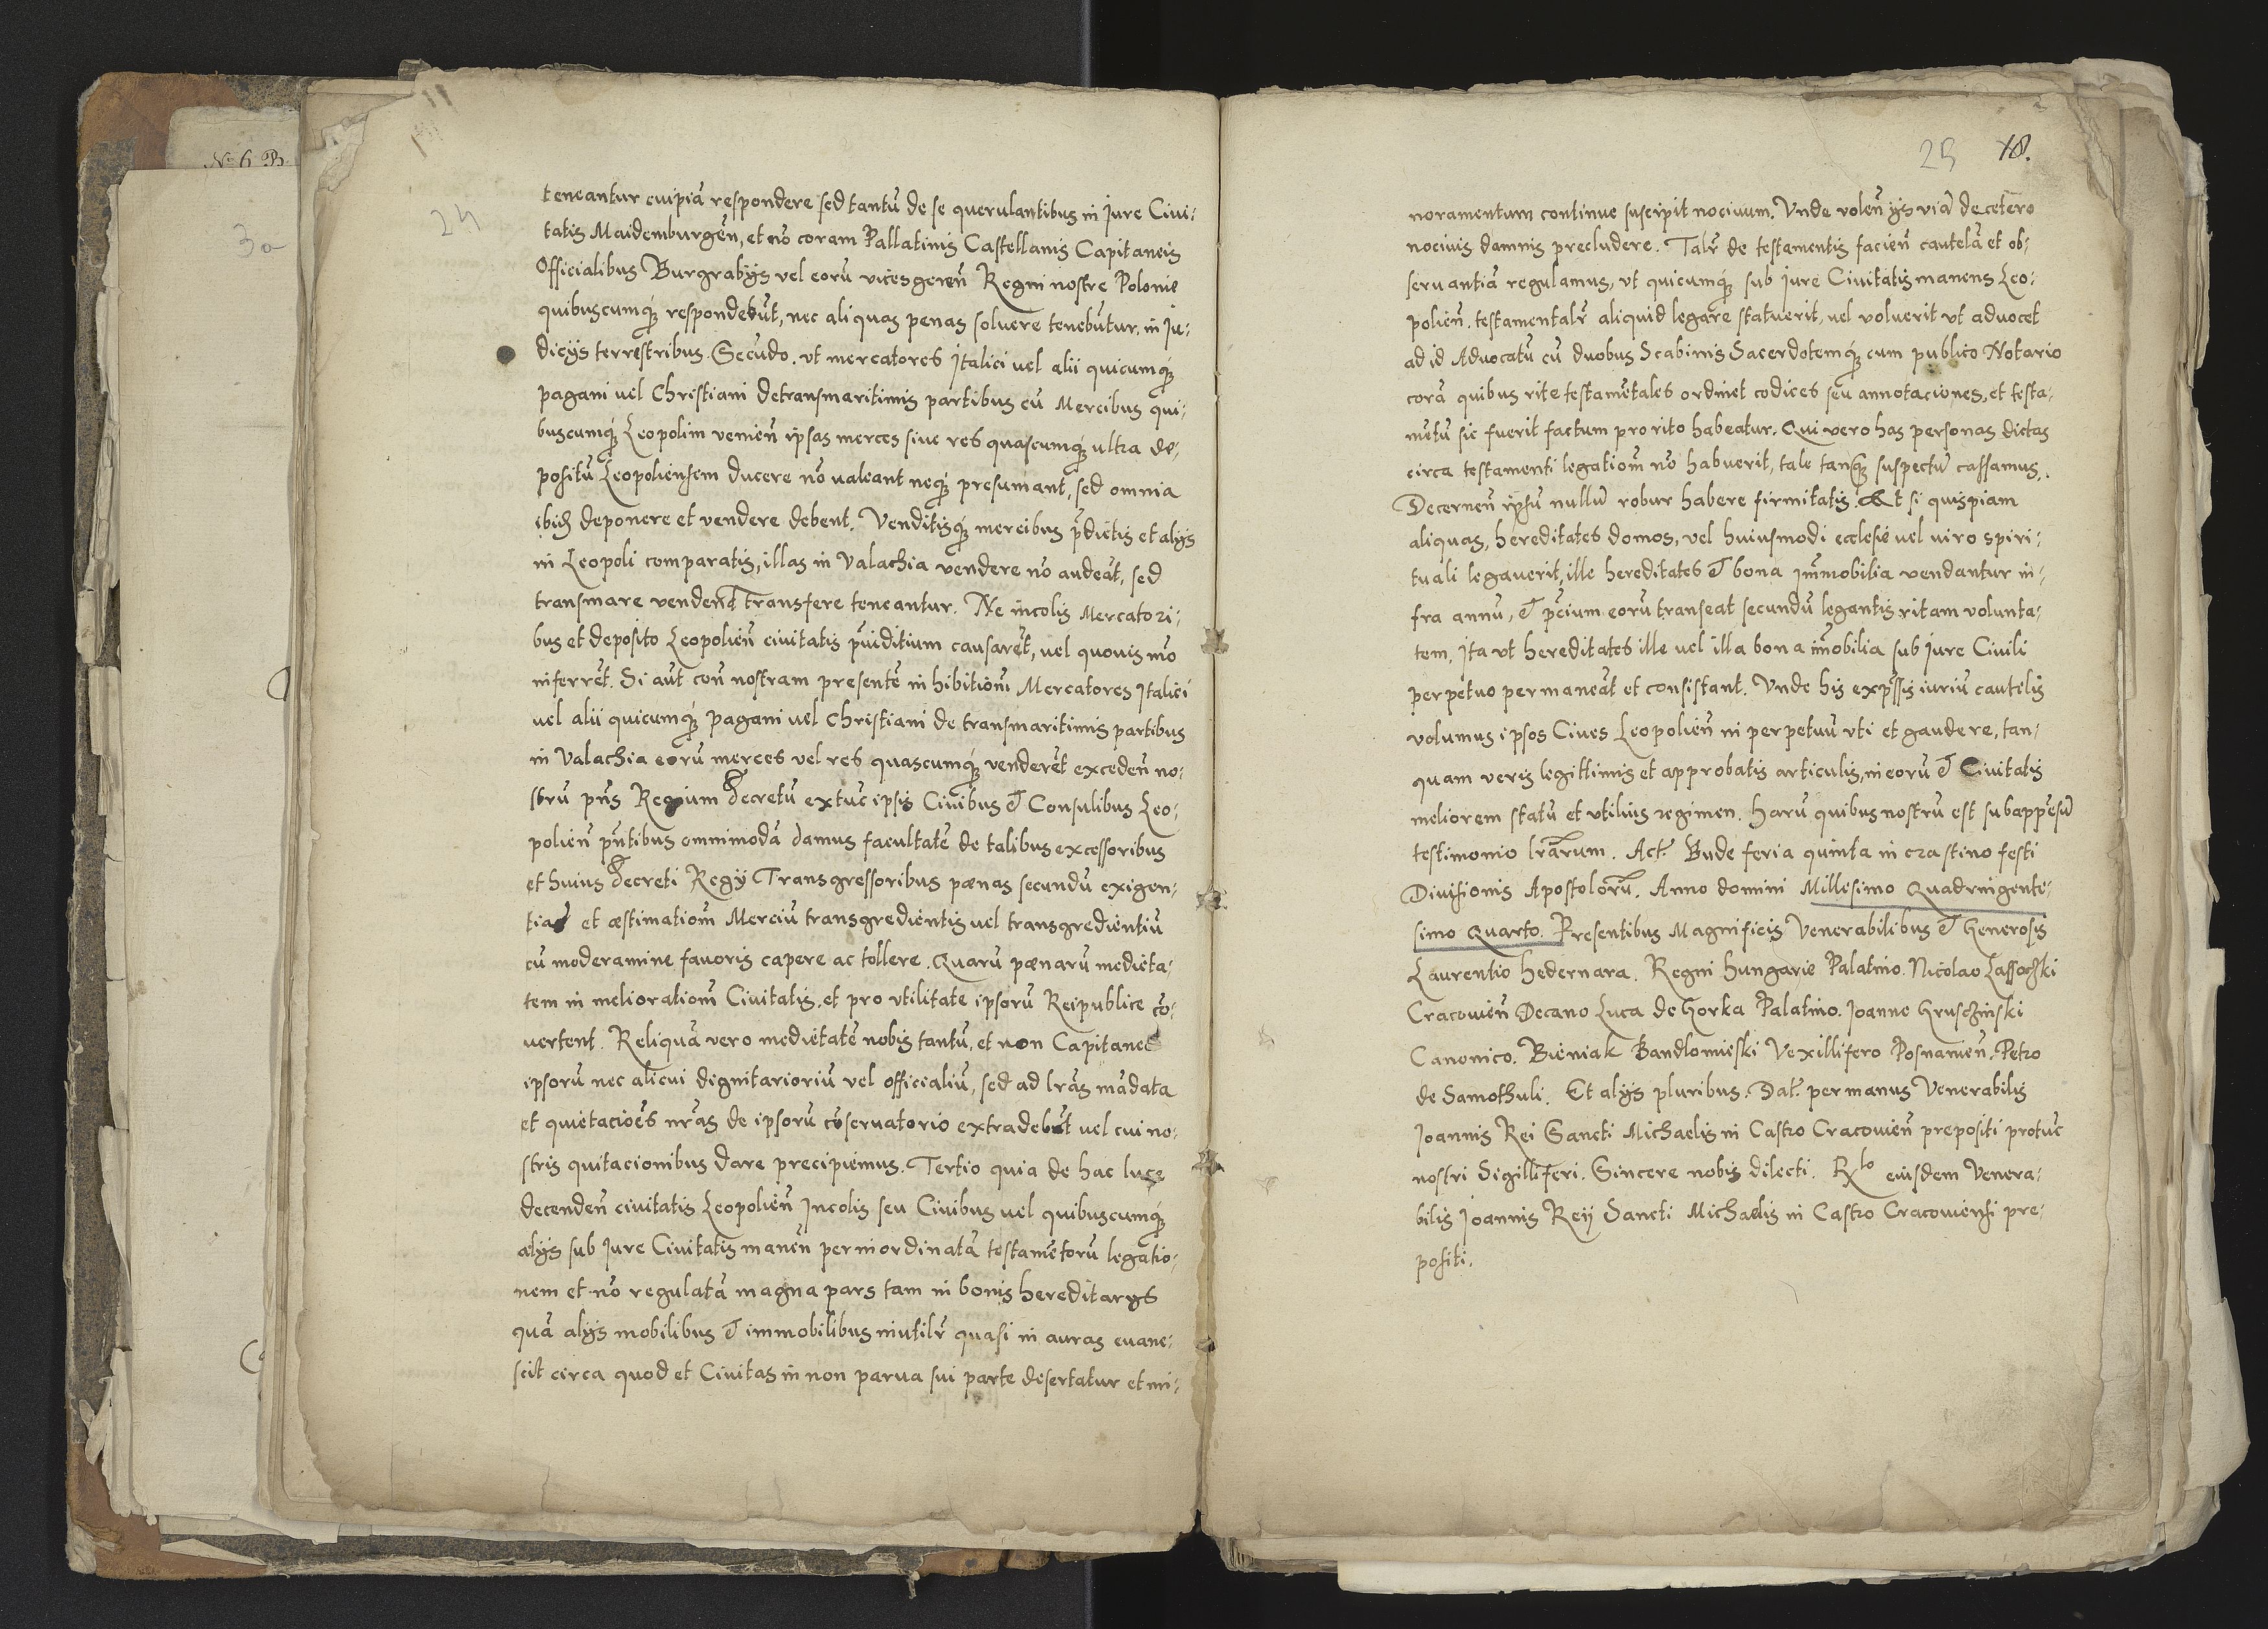 No 6 B.
3a
24
teneantur cuipiã respondere sed tantũ de se querulantibus in Jure Ciui-
tatis Maidemburgeñ, et nõ coram Pallatinis Castellanis Capitaneis
Officialibus Burgrabijs vel eorũ vicesgereñ Regni nostre Polonie
quibuscumq́ respondebũt, nec aliquas penas soluere tenebũtur, in Ju-
dicijs terrestribus. Secũdo. vt mercatores Italici vel alii quicumq́
pagani vel Christiani de transmaritimis partibus cũ Mercibus qui-
buscumq́ Leopolim venieñ ipsas merces siue res quascumq́ ultra de-
positũ Leopoliensem ducere nõ valeant neq́ presumant, sed omnia
ibid deponere et vendere debent. Venditisq́ mercibus p̃dictis et alijs
in Leopoli comparatis, illas in Valachia vendere nõ audeãt, sed
transmare vendend transfere teneantur. Ne incolis Mercatori-
bus et deposito Leopolieñ ciuitatis p̃iuditium causarẽt, vel quouis mõ
inferrẽt. Si aũt coñ nostram presentẽ inhibitionẽ Mercatores Italici
vel alii quicumq́ pagani vel Christiani de transmaritimis partibus
in Valachia eorũ merces vel res quascumq́ venderẽt excedeñ no-
strũ pñs Regium Decretũ extũc ipsis Ciuibus et Consulibus Leo-
polieñ pñtibus omnimodã damus facultatẽ de talibus excessoribus
et huius Decreti Regij Transgressoribus pænas secundũ exigen-
tias et æstimationẽ Merciũ transgredientis vel transgredientiũ
cũ moderamine fauoris capere ac tollere. Quarũ pænarũ medieta-
tem in meliorationẽ Ciuitatis. et pro vtilitate ipsorũ Reipublice cõ-
vertent. Reliquã vero medietatẽ nobis tantũ, et non Capitaneo
ipsorũ nec alicui dignitarioriũ vel officialiũ, sed ad lrãs mãdata
et quietacioẽs nrãs de ipsorũ cõseruatorio extradebũt vel cui no-
stris quitacionibus dare precipiemus. Tertio quia de hac luce
decendeñ ciuitatis Leopolieñ Incolis seu Ciuibus vel quibuscumq́
alijs sub Jure Ciuitatis maneñ per inordinatã testamẽtorũ legatio-
nem et nõ regulatã magna pars tam in bonis hereditarys
quã alijs mobilibus et immobilibus inutilr̃ quasi in auras euane-
scit circa quod et Ciuitas in non parua sui parte desertatur et mi-
25 18.
noramentum continue suscipit nociuum. Vnde voleñ ijs viã de cetero
nociuis damnis precludere. Talr̃ de testamentis facieñ cautelã et ob-
seruantiã regulamus, vt quicumq́ sub jure Ciuitatis manens Leo-
polieñ. testamentalr̃ aliquid legare statuerit, vel voluerit vt aduocet
ad id Aduocatũ cũ duobus Scabinis Sacerdotemq́ cum publico Notario
corã quibus rite testamẽtales ordinet codices seu annotaciones, et testa-
mẽtũ sic fuerit factum pro rito habeatur. Qui vero has personas dictas
circa testamenti legationẽ nõ habuerit, tale tanq́ suspectũ cassamus.
Decerneñ ipsũ nullũ robur habere firmitatis. Et si quispiam
aliquas, hereditates domos, vel huiusmodi ecclesie vel viro spiri-
tuali legauerit, ille hereditates et bona immobilia vendantur in-
fra annũ, et p̃cium eorũ transeat secundũ legantis ritam volunta-
tem, Ita vt hereditates ille vel illa bona im̃obilia sub jure Ciuili
perpetuo permaneãt et consistant. Vnde his exp̃ssis iuriũ cautelis
volumus ipsos Ciues Leopolieñ in perpetuũ vti et gaudere, tan-
quam veris legittimis et approbatis articulis, in eorũ et Ciuitatis
meliorem statũ et vtilius regimen. Harũ quibus nostrũ est subappẽsũ
testimonio lrãrum. Act. Bude feria quinta in crastino festi
Diuisionis Apostolorũ. Anno domini Millesimo Quadringente-
simo Quarto. Presentibus Magnificis Venerabilibus et Generosis
Laurentio Hedernara. Regni Hungarie Palatino. Nicolao Lassoczki
Cracouieñ Decano Luca de Gorka Palatino. Joanne Gruschinski
Canonico. Bieniak Bandlomieski Vexillifero Posnanieñ. Petro
de Samothuli. Et alijs pluribus. Dat. per manus Venerabilis
Joannis Rei Sancti Michaelis in Castro Cracouieñ prepositi protũc
nostri Sigilliferi. Sincere nobis dilecti. Rlo eiusdem Venera-
bilis Joannis Reij Sancti Michaelis in Castro Cracouiensi pre-
positi.